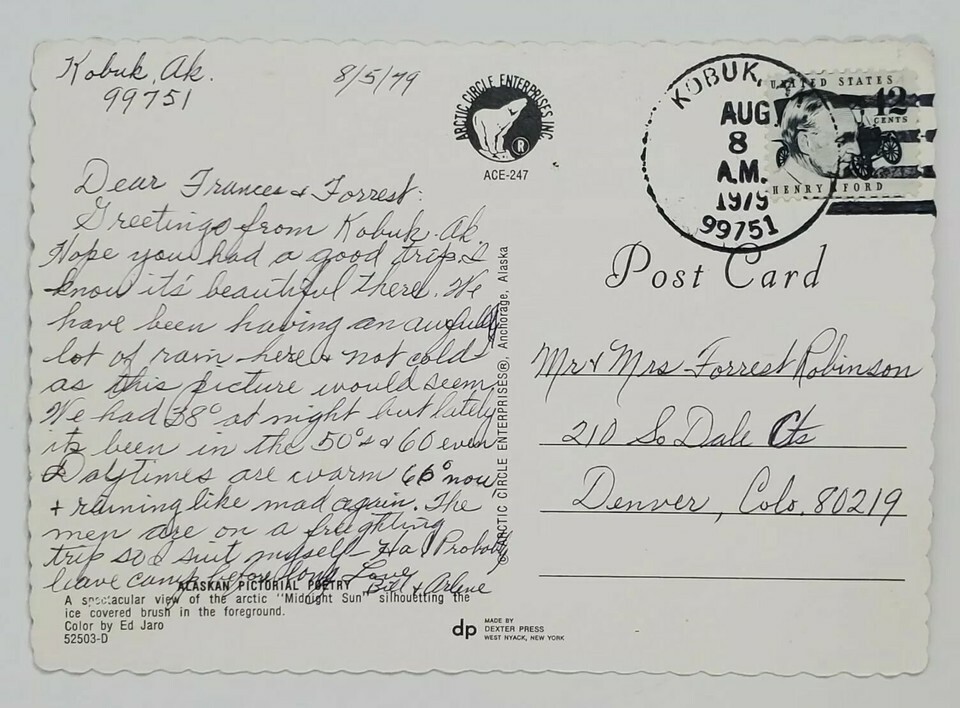 Kobuk, Ak.
99751
8/5/79
Dear Frances & Forrest:
Greetings from Kobuk. Ak
Hope you had a good trip. I
know it's beautiful there. We
have been having an awfully
lot of rain here & not cold
as this picture would seem,
We had 38° at night but lately
its been in the 50°s & 60 even
Daytimes are warm 66° now
+ raining like mad again. The
men are on a freighting
trip so I suit myself - Ha! Probably
leave camp before long Love
Bill & Arlene
ALASKAN PICTORIAL POETRY
A spectacular view of the arctic "Midnight Sun" silhouetting the
ice covered brush in the foreground.
Color by Ed Jaro
52503-D
ARCTIC CIRCLE ENTERPRISES INC
®
ACE-247
© ARCTIC CIRCLE ENTERPRISES®, Anchorage, Alaska
dp
MADE BY
DEXTER PRESS
WEST NYACK, NEW YORK
KOBUK,
AUG
8
A.M.
1979
99751
UNITED STATES
12
CENTS
HENRY FORD
Post Card
Mr & Mrs - Forrest Robinson
210 So Dale Cts
Denver, Colo. 80219